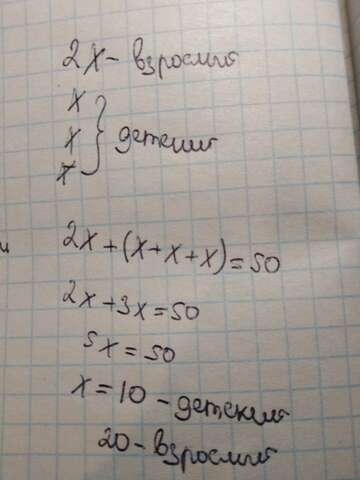 2x - взрослый
x
x } детский
x
2x+(x+x+x)=50
2x+3x=50
5x=50
x=10 - детский
20 - взрослый